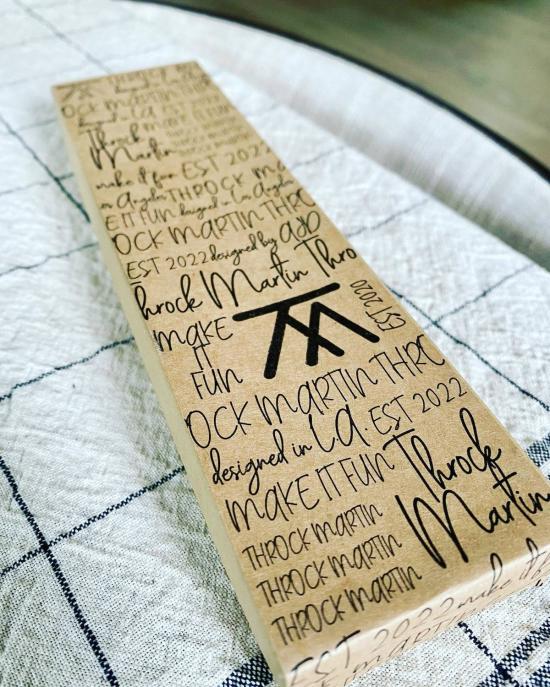 OCK MARTIN THR
Throck
Martin
THROCK MARTIN
make it fun EST 2022
Los Angeles THROCK M
E IT FUN designed in Los Angeles
OCK MARTIN THRO
EST 2022 designed by ajp
Throck Martin Thro
MAKE
IT
FUN
EST 2020
OCK MARTIN THRO
designed in LA. EST 2022
MAKE IT FUN Throck
Martin
THROCK MARTIN
THROCK MARTIN
THROCK MARTIN
EST 2022 make it f